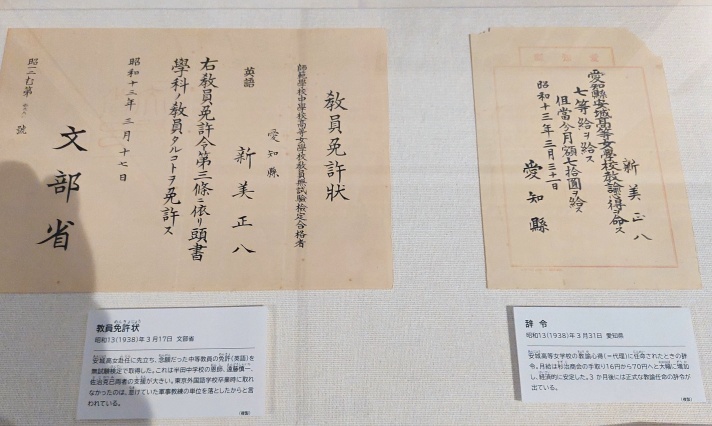 教員免許状
師範學校中學校高等女學校教員無試驗檢定合格者
愛知縣
英語
新美正八
右教員免許令第三條ニ依リ頭書
學科ノ教員タルコトヲ免許ス
昭和十三年三月十七日
文部省
號
新美正八
愛知縣安城高等女學校教諭心得ヲ命ス
七等給ヲ給ス
但當分月額七拾圓ヲ給ス
昭和十三年三月三十一日
愛知縣
教員免許状
昭和13(1938)年3月17日 文部省
安城高女赴任に先立ち、念願だった中等教員の免許(英語)を
無試験検定で取得した。これは半田中学校の恩師、遠藤慎一、
佐治克己両者の支援が大きい。東京外国語学校卒業時に取れ
なかったのは、怠けていた軍事教練の単位を落としたからと言
われている。
(複製)
辞令
昭和13(1938)年3月31日 愛知県
安城高等女学校の教諭心得(=代理)に任命されたときの辞
令。月給は杉治商会の手取り16円から70円へと大幅に増加
し、経済的に安定した。3か月後には正式な教諭任命の辞令が
出ている。
(複製)